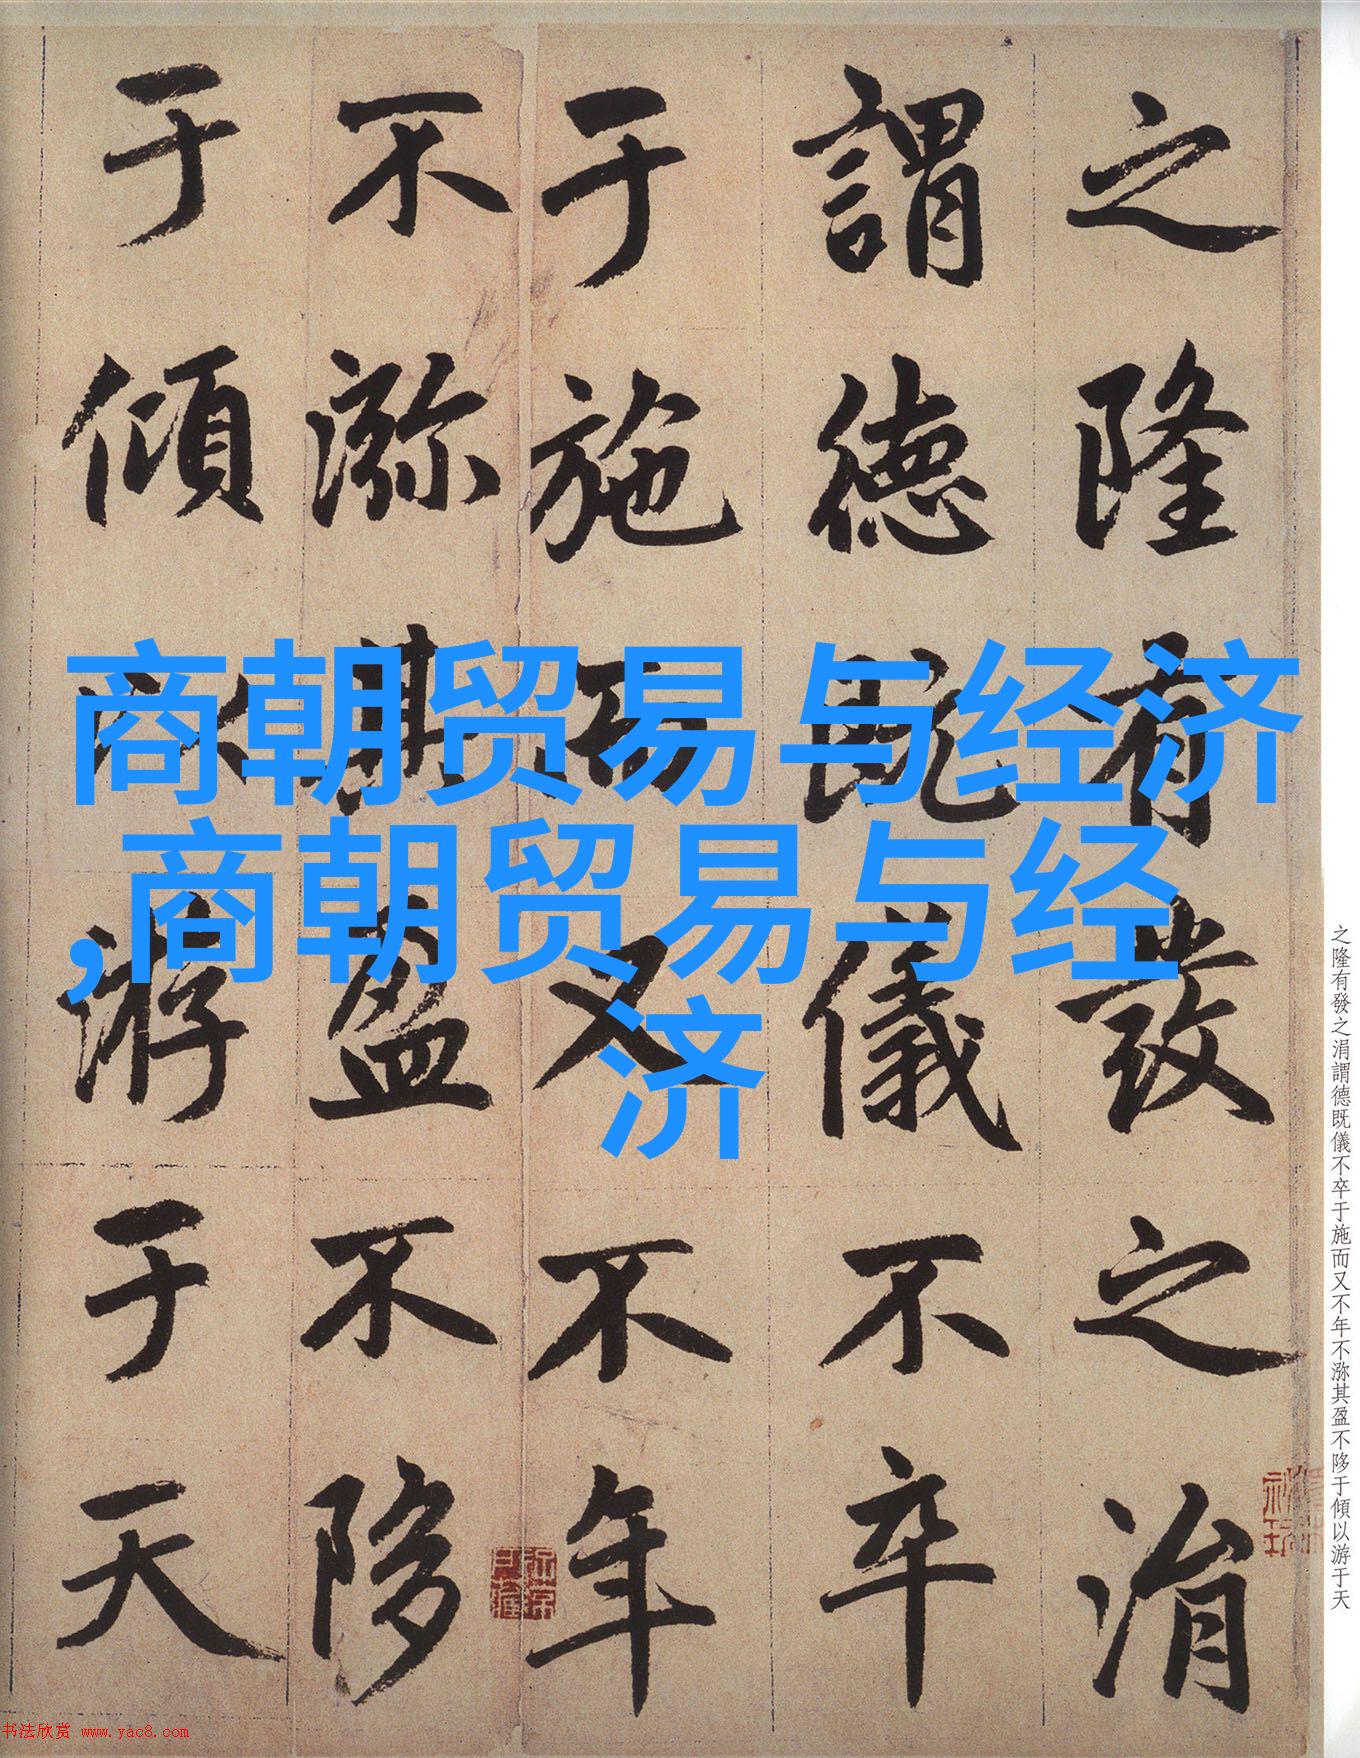 之隆有發之涓
謂德既儀不卒
于施而又不年
不渊其盈不陊
于傾以游于天
商朝贸易与经济
,商朝贸易与经
济
之隆有發之涓謂德既儀不卒于施而又不年不渊其盈不陊于傾以游于天
书法欣赏 www.yac8.com